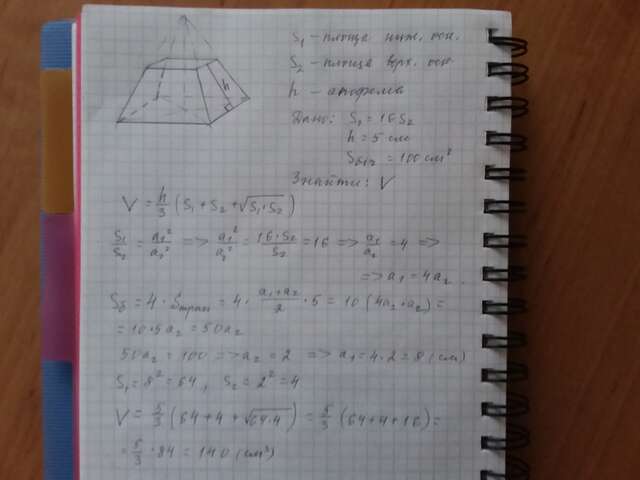 h
S₁ - площа ниж. осн.
S₂ - площа верх. осн.
h - апофема
Дано: S₁ = 16 S₂
h = 5 см
Sбіч = 100 см²
Знайти: V
V = h/3 (S₁ + S₂ + √(S₁·S₂))
S₁/S₂ = a₁²/a₂² => a₁²/a₂² = 16·S₂/S₂ = 16 => a₁/a₂ = 4 =>
=> a₁ = 4a₂.
Sб = 4 · Sтрап = 4 · (a₁+a₂)/2 · 5 = 10 (4a₂+a₂) =
= 10·5a₂ = 50a₂
50a₂ = 100 => a₂ = 2 => a₁ = 4·2 = 8 (см)
S₁ = 8² = 64, S₂ = 2² = 4
V = 5/3 (64 + 4 + √(64·4)) = 5/3 (64+4+16) =
= 5/3 · 84 = 140 (см³)